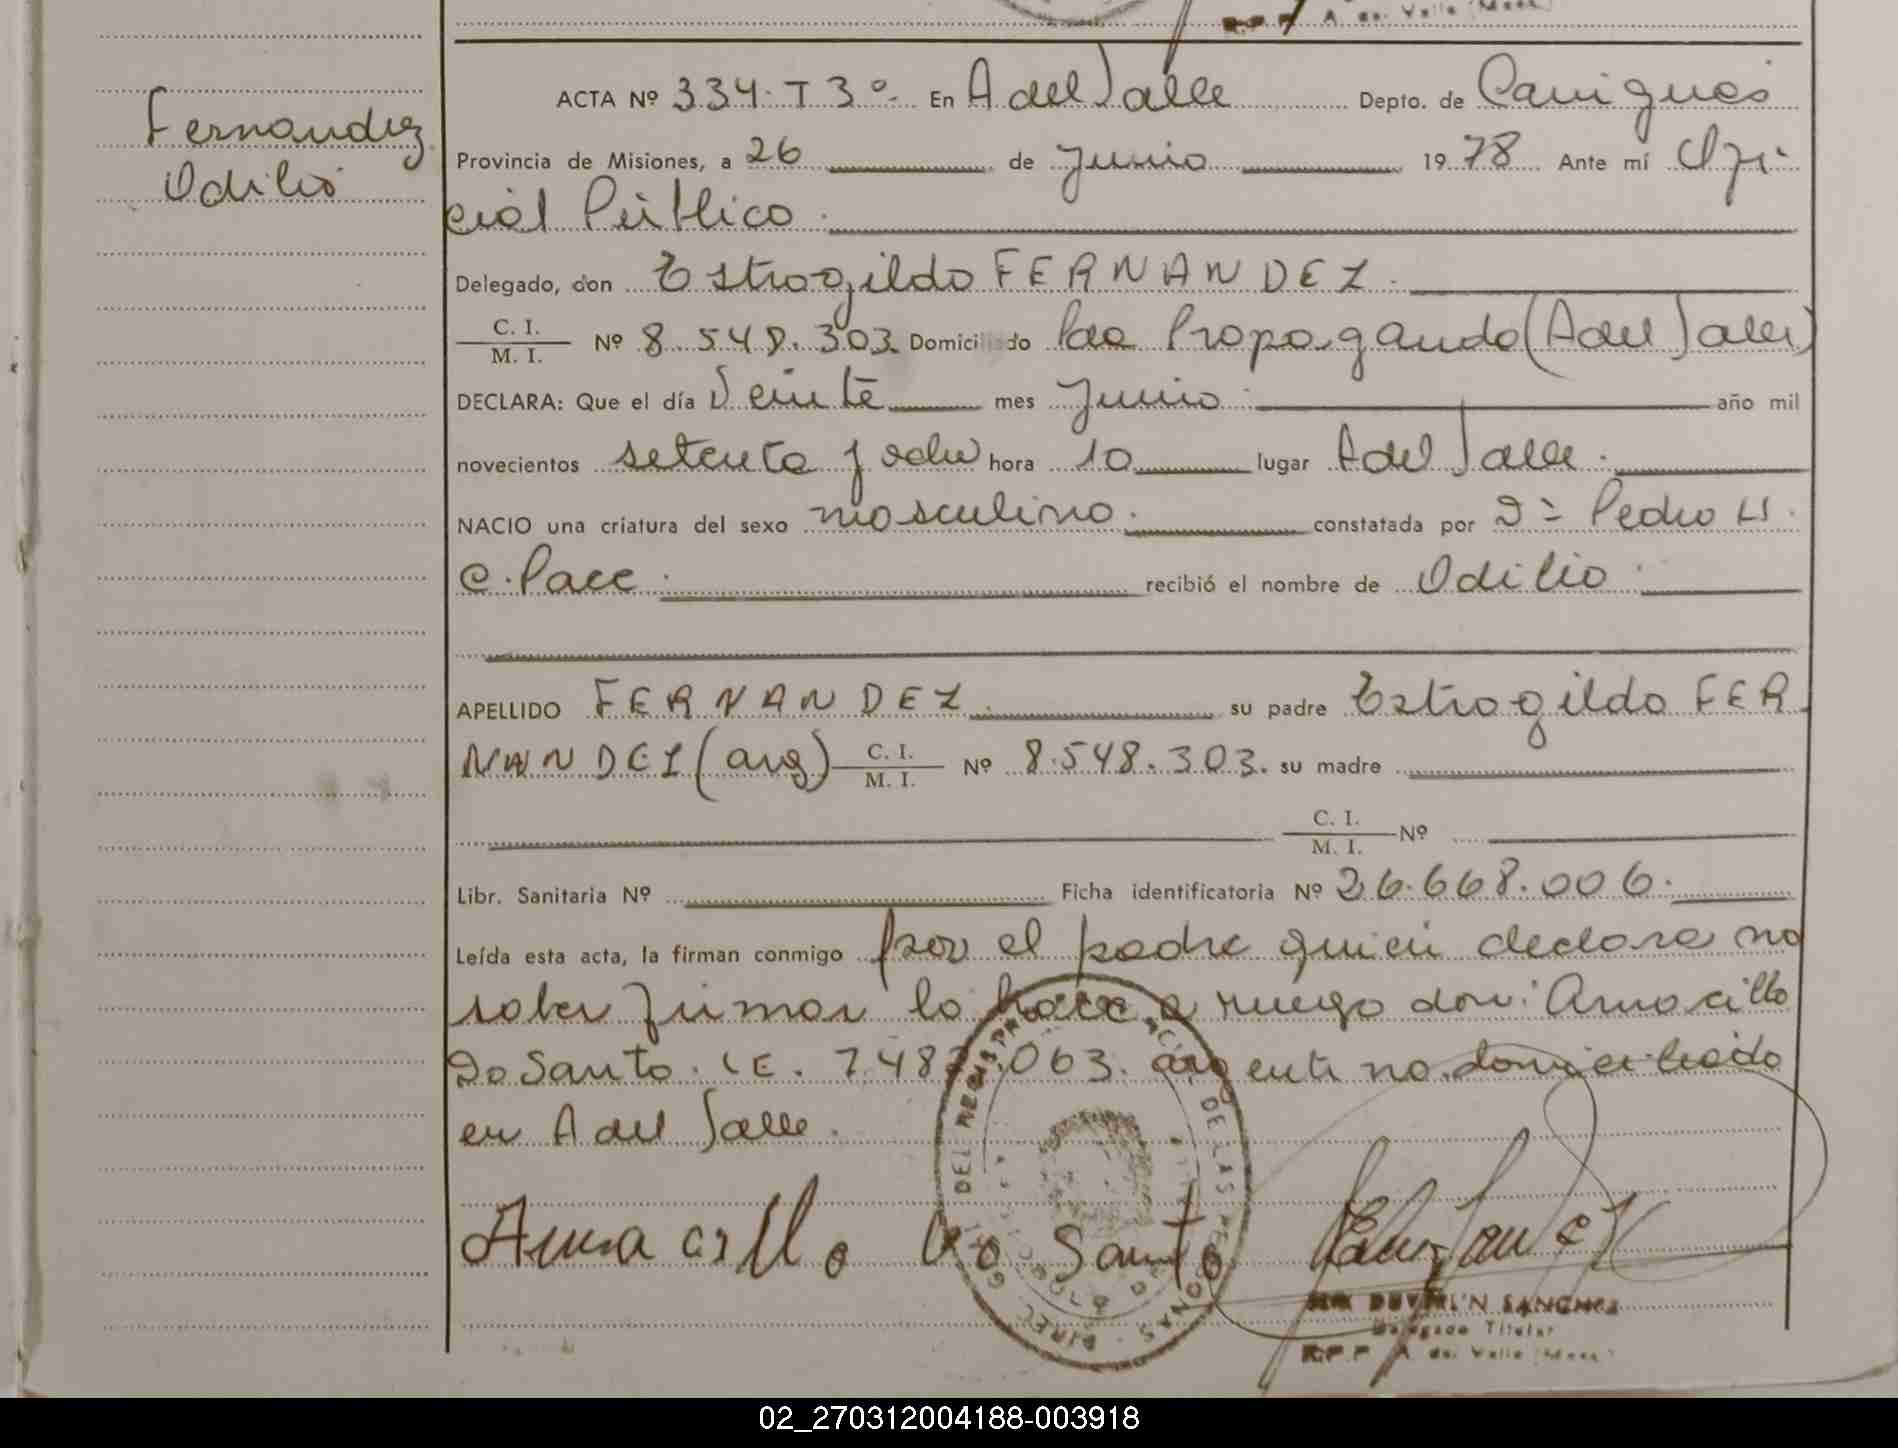 A. del Valle (Mnes.)
Fernandez
Odilio
ACTA Nº 334. T 3º. En A del Valle Depto. de Cainguás
Provincia de Misiones, a 26 de Junio 1978 Ante mí Ofi-
cial Público.
Delegado, don Estrogildo FERNANDEZ.
C. I.
M. I. Nº 8.548.303 Domiciliado Pdo Propaganda (A del Valle)
DECLARA: Que el día Veinte mes Junio año mil
novecientos setenta y ocho hora 10 lugar A del Valle.
NACIO una criatura del sexo masculino. constatada por Pedro H.
C. Pace. recibió el nombre de Odilio.
APELLIDO FERNANDEZ. su padre Estrogildo FER
NANDEZ (arg) C. I.
M. I. Nº 8.548.303. su madre
C. I.
M. I. Nº
Libr. Sanitaria Nº Ficha identificatoria Nº 26.668.006.
Leída esta acta, la firman conmigo por el padre quien declara no
saber firmar lo hace a ruego don: Amacillo
Do Santo. LE. 7.482.063. argentino domiciliado
en A del Valle.
Amacillo Do Santo
DEL REGISTRO DE LAS PERSONAS - DIREC. GRAL.
SANCHEZ
Delegado Titular
R.P.P. A. del Valle (Mnes.)
02_270312004188-003918